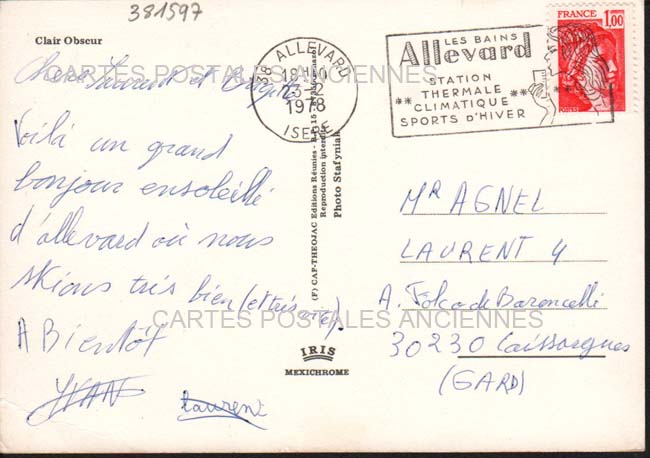 381597
Clair Obscur
Chers Laurent et Brigitte
Voilà un grand
bonjour ensoleillé
d'allevard où nous
skions très bien (et très vite).
A Bientôt
YVAN
Laurent
CARTES POSTALES ANCIENNES
CARTES POSTALES ANCIENNES
(F) CAP-THEOJAC Editions Réunies
Reproduction interdite
Photo Stafyniak
IRIS
MEXICHROME
38 ALLEVARD
1978
ISERE
LES BAINS
Allevard
STATION
THERMALE
** CLIMATIQUE **
SPORTS d'HIVER
FRANCE 1,00
POSTES
Mr AGNEL
LAURENT 4
A. Folco de Baroncelli
30230 Caissargues
(GARD)